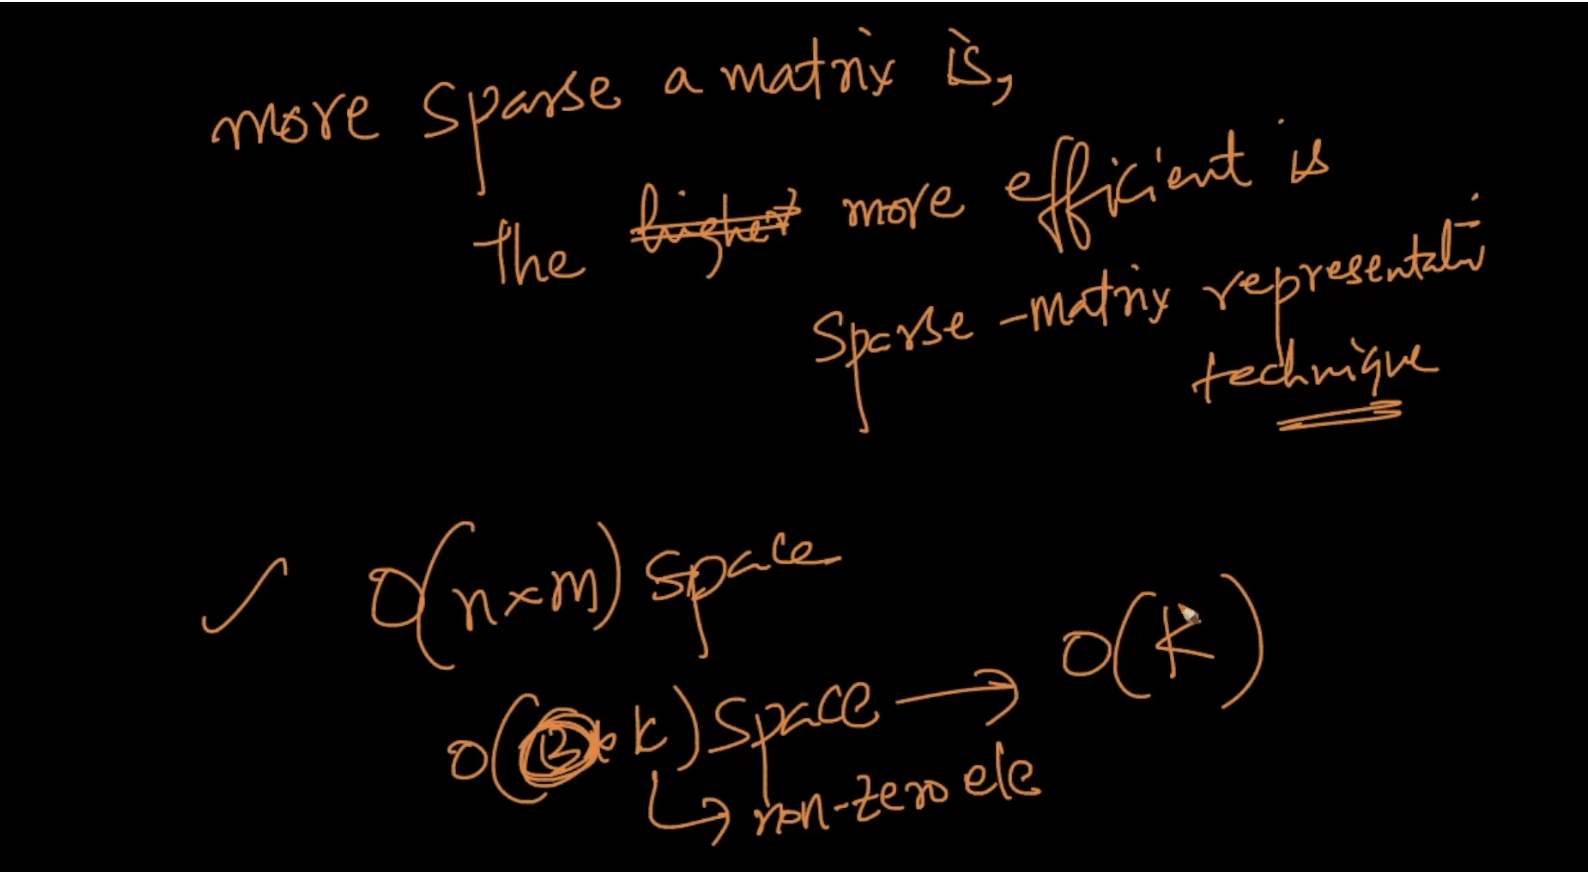 more sparse a matrix is,
the higher more efficient is
sparse-matrix representati
technique
O(n×m) space
O(3*k) space → O(K)
non-zero ele